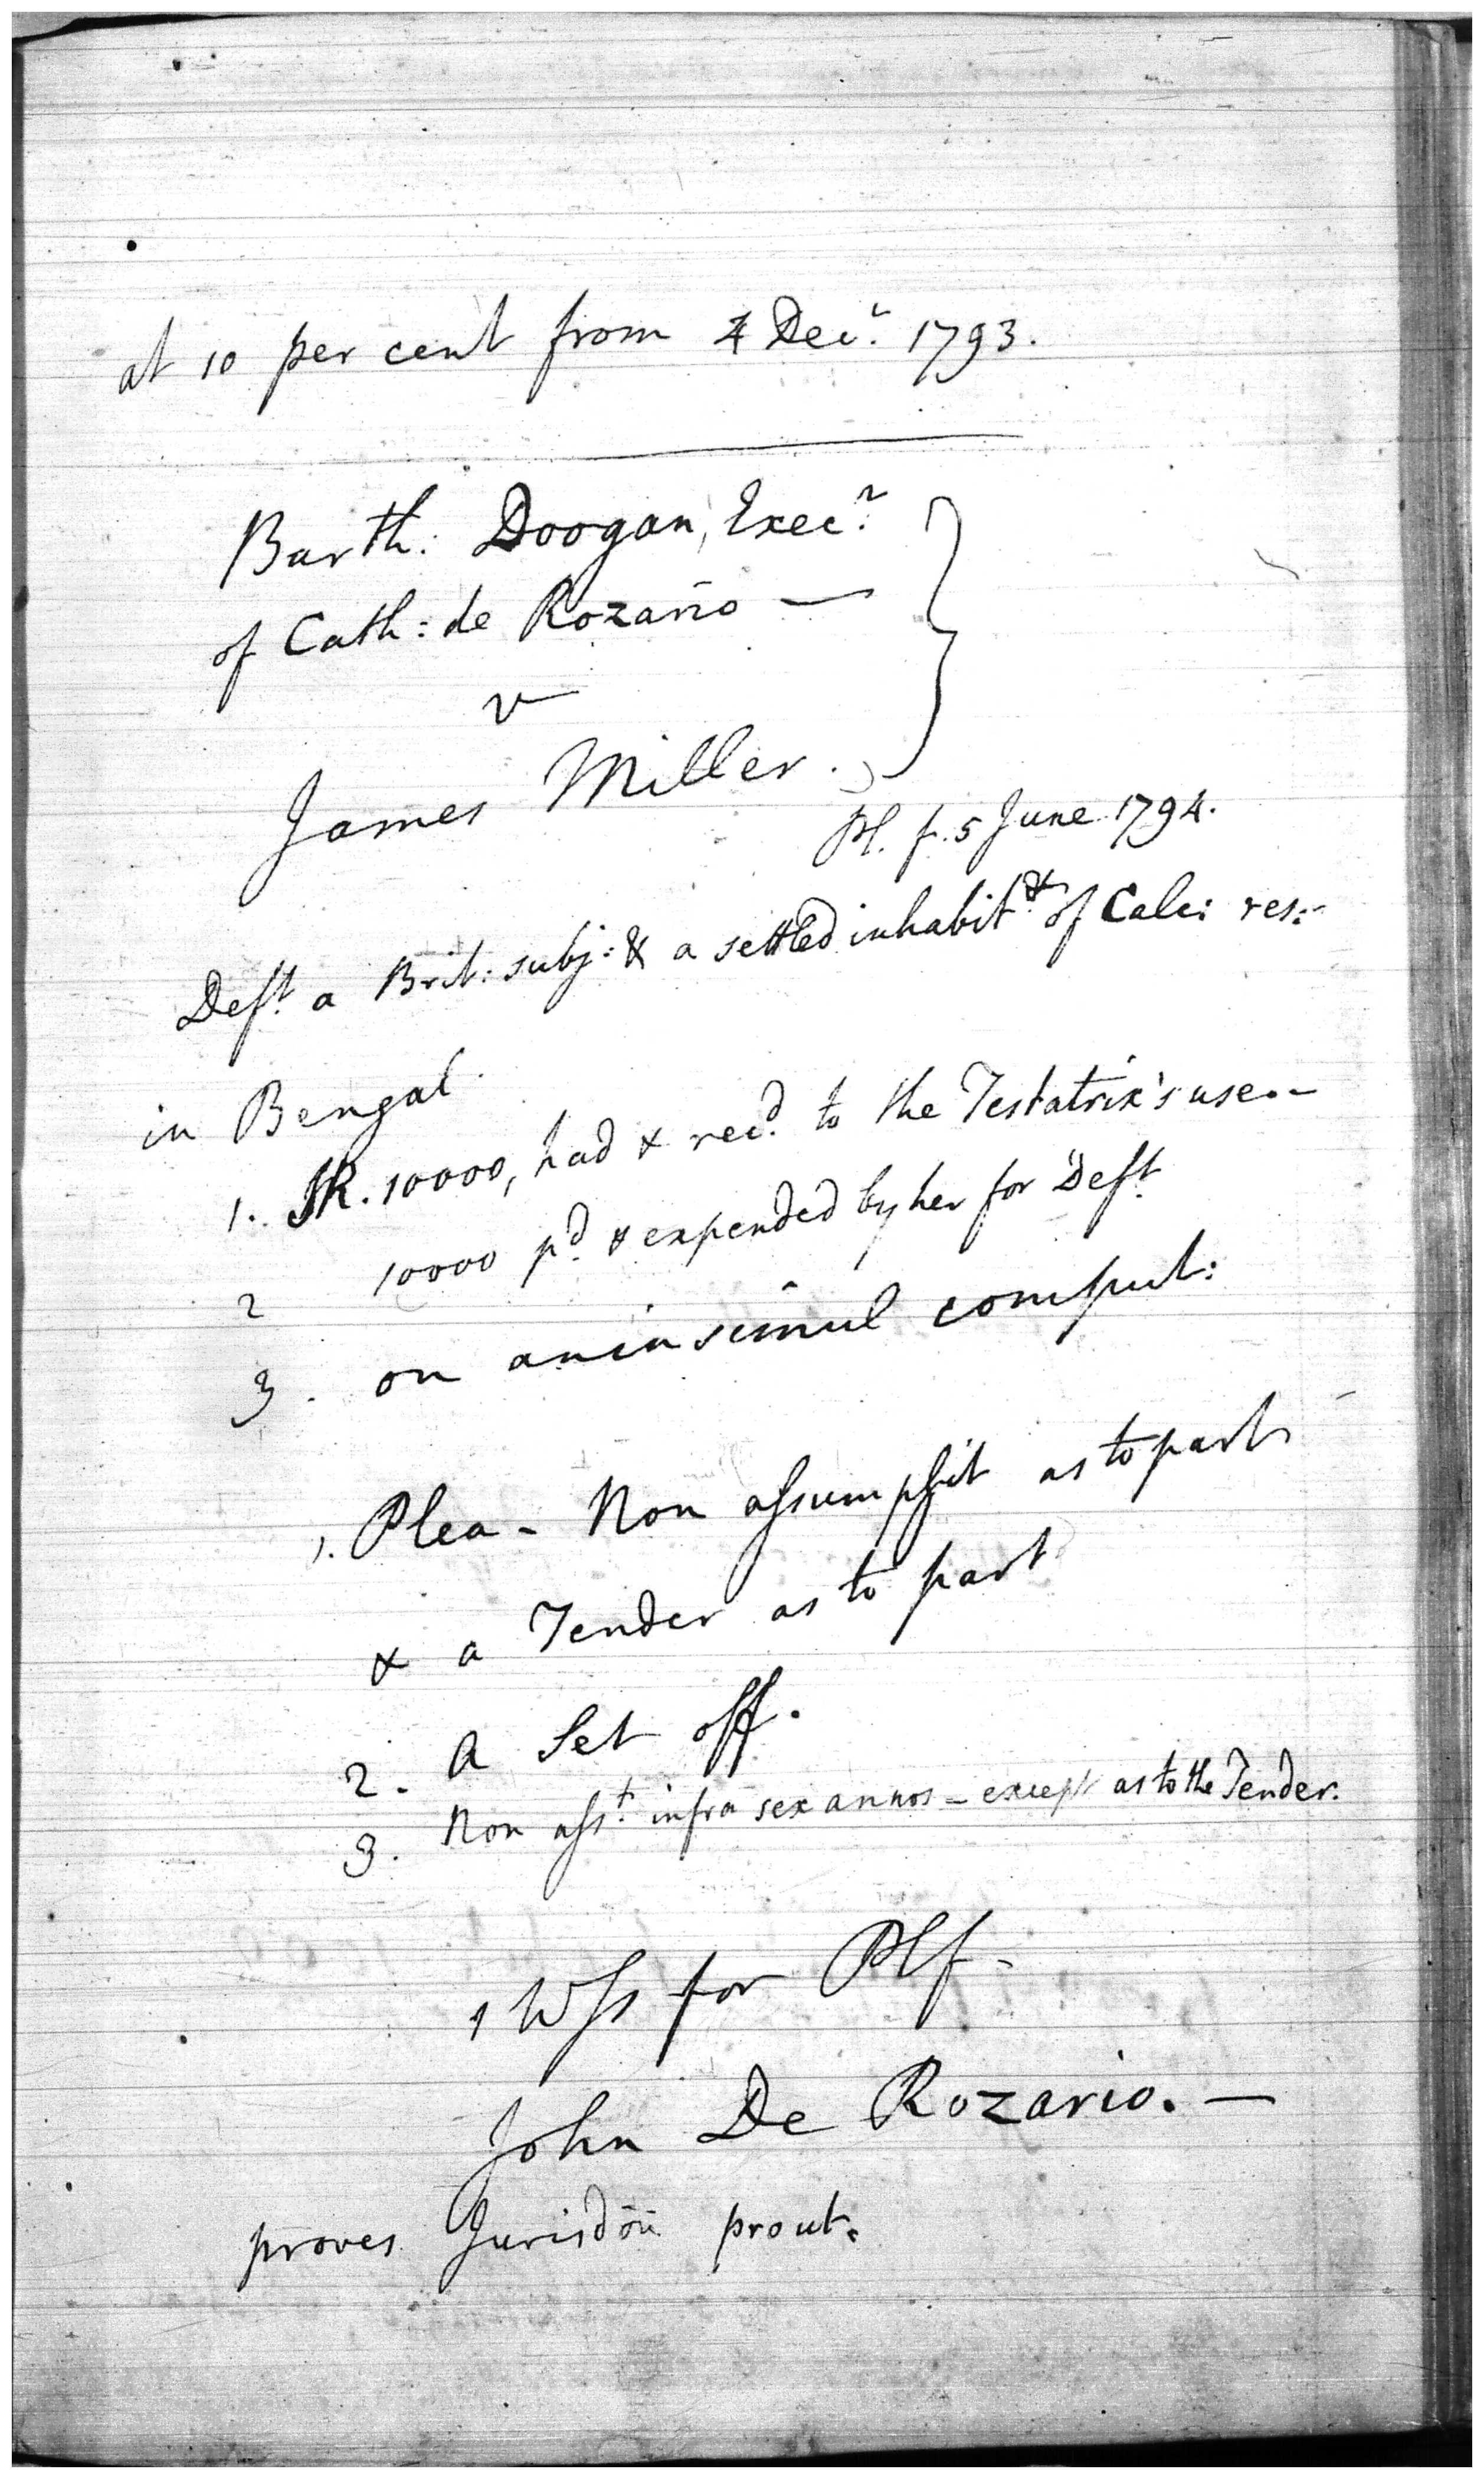 at 10 per cent from 4 Decr. 1793.
Barth: Doogan, Execr.
of Cath: de Rozario —
v
James Miller.
Pl. f. 5 June 1794.
Deft. a Brit: subj: & a settled inhabitt. of Calc: res:
in Bengal.
1. SR. 10000, had & recd. to the Testatrix's use. –
2 10000 pd. & expended by her for Deft.
3. on an insimul comput:
1. Plea - Non assumpsit as to part
& a Tender as to part
2. A Set off.
3. Non asst. infra sex annos – except as to the Tender.
1 Wss for Plf -
John De Rozario. —
proves Jurisdōn prout.